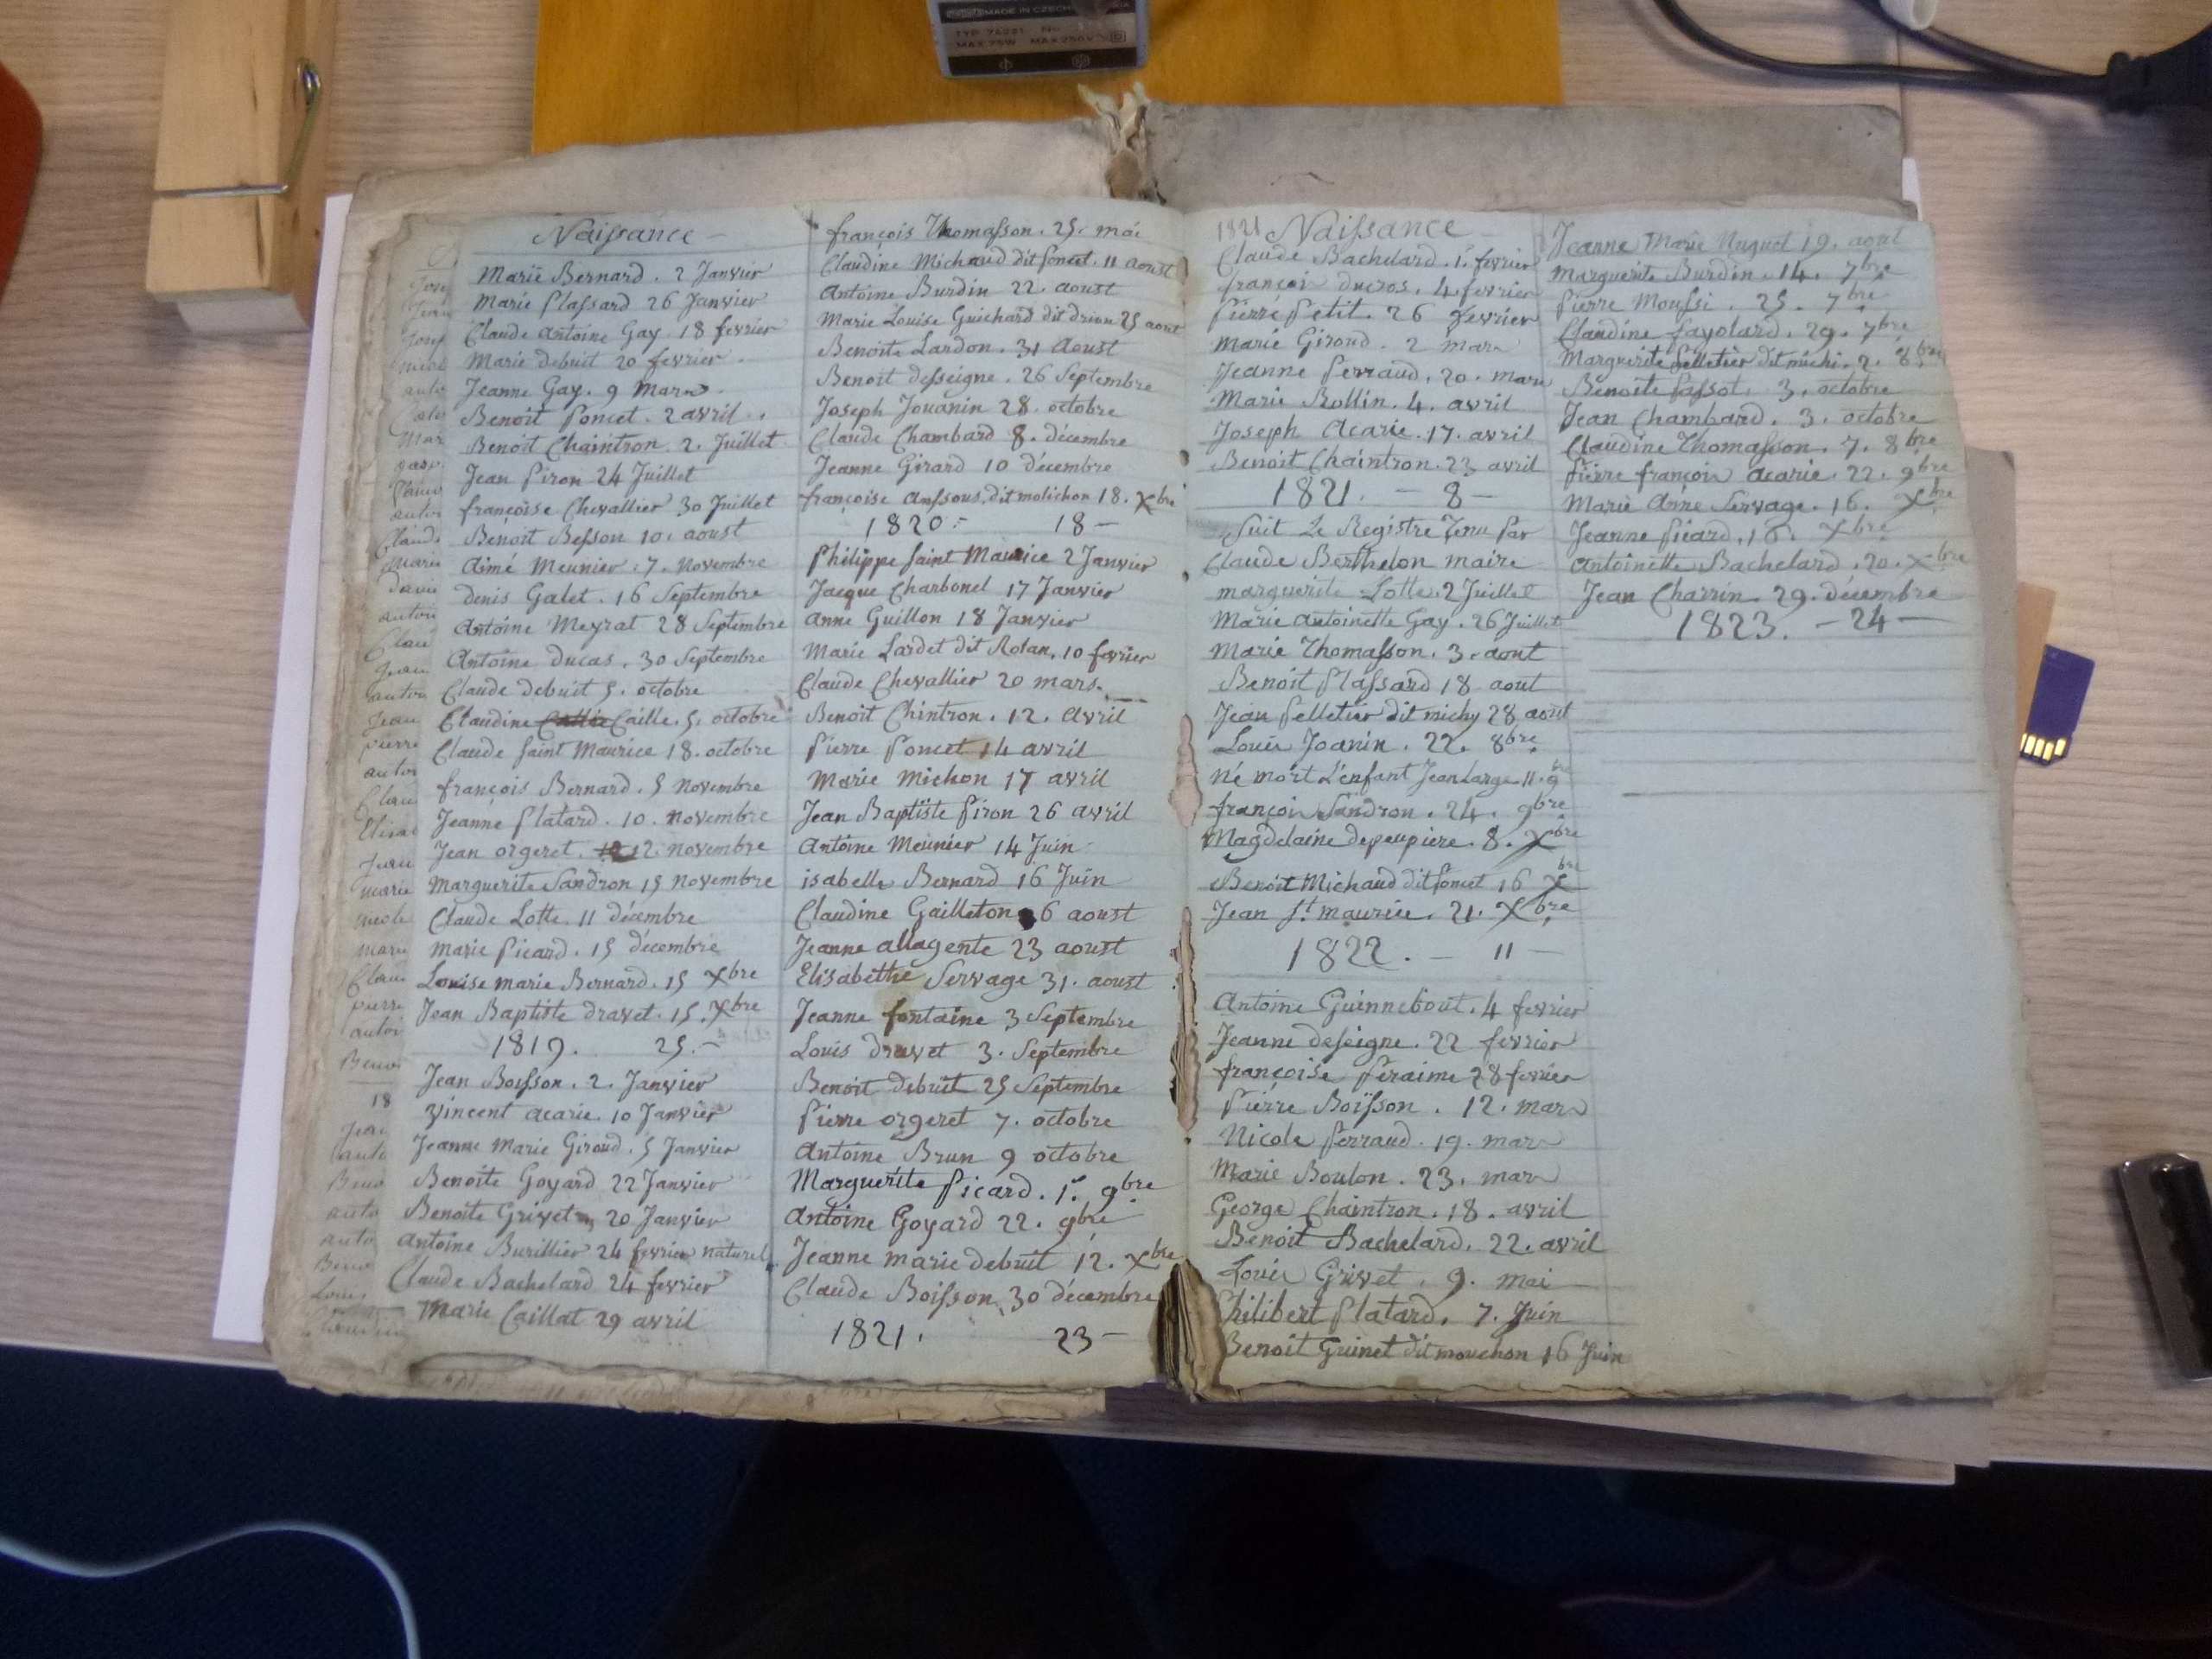 MADE IN CZECH
TYP
MAX 75W MAX 250V
Naissance
Marie Bernard. 2 Janvier
Marie Plassard 26 Janvier
Claude Antoine Gay. 18 fevrier
Marie debuit 20 fevrier.
Jeanne Gay. 9 Mars
Benoit Poncet. 2 avril.
Benoit Chaintron. 2. Juillet
Jean Piron 24 Juillet
françoise Chevallier 30 Juillet
Benoit Besson 10. aoust
Aimé Meunier. 7. Novembre
Denis Galet. 16 Septembre
Antoine Meyrat 28 Septembre
Antoine Ducas. 30 Septembre
Claude debuit 5. octobre
Claudine Caille. 5. octobre
Claude Saint Maurice 18. octobre
françois Bernard. 5 Novembre
Jeanne Platard. 10. novembre
Jean orgeret. 12. novembre
Marguerite Sandron 15 novembre
Claude Lotte. 11 décembre
Marie Picard. 15 décembre
Louise marie Bernard. 15 Xbre
Jean Baptiste dravet. 15. Xbre
1819. 25.-
Jean Boisson. 2. Janvier
Vincent acarie. 10 Janvier
Jeanne Marie Giroud. 5 Janvier
Benoite Goyard 22 Janvier
Benoite Grivet 20 Janvier
Antoine Burillier 24 fevrier naturel
Claude Bachelard 24 fevrier
Marie Caillat 29 avril
françois Thomasson. 25. mai
Claudine Michaud dit Poncet. 11 aoust
Antoine Burdin 22. aoust
Marie Louise Guichard dit drion 25 aout
Benoite Lardon. 31 Aoust
Benoit desseigne. 26 Septembre
Joseph Jouanin 28. octobre
Claude Chambard 8. décembre
Jeanne Girard 10 décembre
françoise anssous, dit molichon 18. Xbre
1820.- 18-
Philippe Saint Maurice 2 Janvier
Jacque Charbonel 17 Janvier
Anne Guillon 18 Janvier
Marie Lardet dit Rolan. 10 fevrier
Claude Chevallier 20 mars.
Benoit Chintron. 12. Avril
Pierre Poncet 14 avril
Marie Michon 17 avril
Jean Baptiste Piron 26 avril
Antoine Meunier 14 Juin
isabelle Bernard 16 Juin
Claudine Gailleton 6 aoust
Jeanne allagente 23 aoust
Elisabethe Servage 31. aoust
Jeanne fontaine 3 Septembre
Louis dravet 3. Septembre
Benoit debuit 25 Septembre
Pierre orgeret 7. octobre
Antoine Brun 9 octobre
Marguerite Picard. 1er 9bre
Antoine Goyard 22. 9bre
Jeanne marie debuit 12. Xbre
Claude Boisson 30 décembre
1821. 23-
1821 Naissance
Claude Bachelard. 1er fevrier
françois ducros. 4 fevrier
Pierre Petit. 26 fevrier
Marie Giroud. 2 mars
Jeanne Perraud. 20. mars
Marie Rollin. 4. avril
Joseph Acarie. 17. avril
Benoit Chaintron. 23 avril
1821. - 8-
Suit Le Registre Tenu Par
Claude Berthelon maire
marguerite Lotte. 2 Juillet
Marie Antoinette Gay. 26 Juillet
Marie Thomasson. 3. aout
Benoit Plassard 18 aout
Jean Pelletier dit michy 28 aout
Louis Joanin. 22. 8bre
Né mort L'enfant Jean Large 11. 9bre
françois Sandron. 24. 9bre
Magdelaine depeupiere. 8. Xbre
Benoit Michaud dit Poncet 16 Xbre
Jean St maurice. 21. Xbre
1822. - 11-
Antoine Guinnebout. 4 fevrier
Jeanne deseigne. 22 fevrier
françoise Peraime 28 fevrier
Pierre Boisson. 12. mars
Nicole Perraud. 19. mars
Marie Boulon. 23. mars
George Chaintron. 18. avril
Benoit Bachelard. 22. avril
Louis Grivet. 9. mai
Philibert Platard. 7. Juin
Benoit Guinet dit mouchon 16 Juin
Jeanne Marie Nuguet 19. aout
Marguerite Burdin. 14. 7bre
Pierre Moussi. 25. 7bre
Claudine Fayolard. 29. 7bre
Marguerite Pelletier dit michi. 2. 8bre
Benoite Passot. 3. octobre
Jean Chambard. 3. octobre
Claudine Thomasson. 7. 8bre
Pierre françois acarie. 22. 9bre
Marie Anne Servage. 16. Xbre
Jeanne Picard. 16. Xbre
Antoinette Bachelard. 20. Xbre
Jean Charrin 29. décembre
1823. - 24-